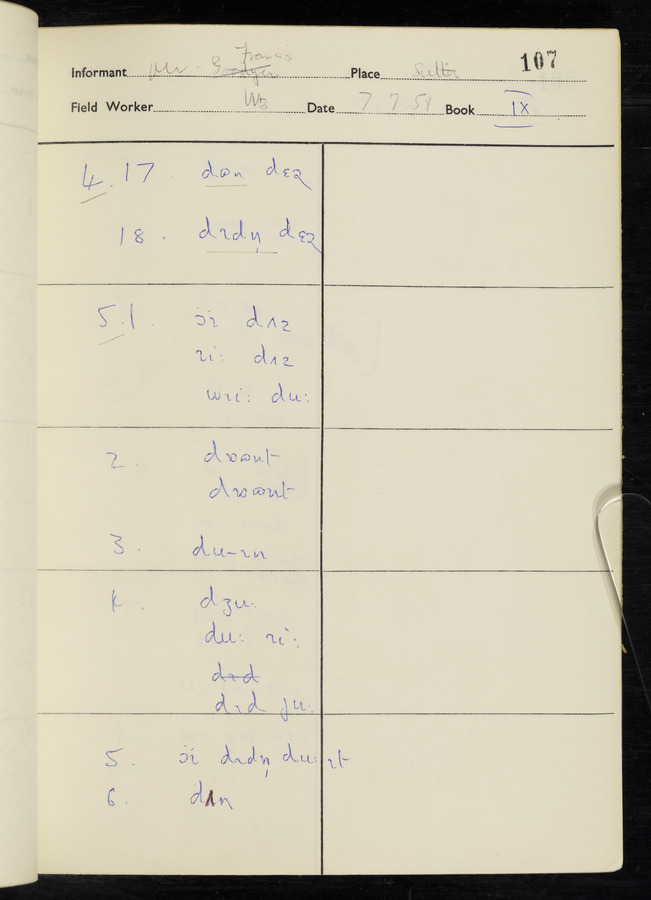 107
Informant Mr. Francis Place Sutton
Field Worker WB Date 7.7.59 Book IX
4.17 . dɒn dɛz
18 . dɪdn̩ dɛz
5.1 . ɔɪ dʌz
ɪi: dʌz
wɪi: du:
2 . dɷɒnt
dɷɒnt
3 . du-ɪn
4 . dʒu:
du: ɪi:
dɪd ju:
5 . ɔɪ dɪdn̩ du: ɪt
6 . dʌn